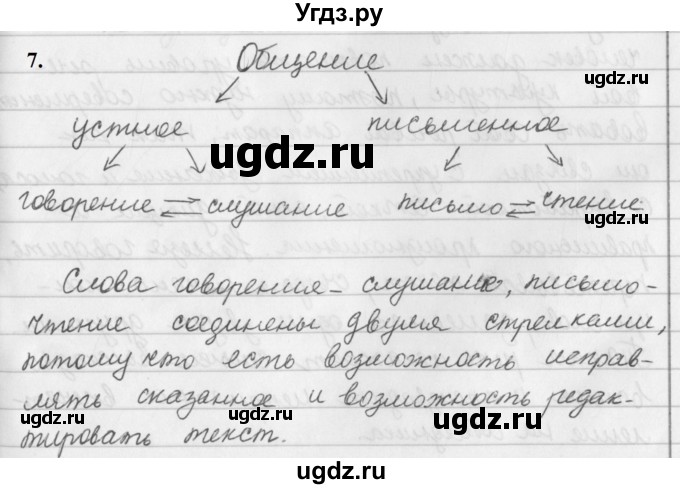 Угдз.ру
7. Общение
ugdz.ru
устное письменное
ugdz.ru
ugdz.ru
говорение ⇄ слушание письмо ⇄ чтение
ugdz.ru
Слова говорения - слушание, письмо-
чтение соединены двумя стрелками,
ugdz.ru
потому что есть возможность исправ-
лять сказанное и возможность редак-
ugdz.ru ugdz.ru
тировать текст.
ugdz.ru